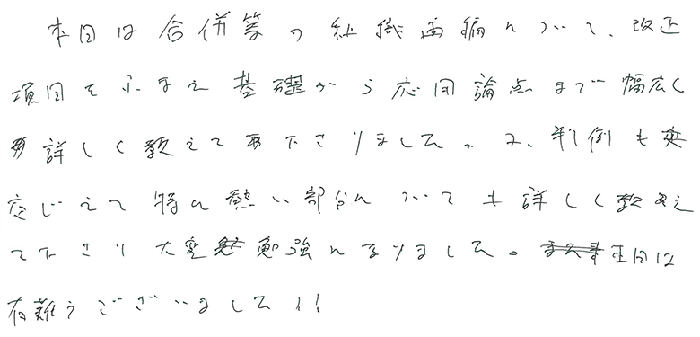 本日は合併等の組織再編について、改正
項目をふまえ基礎から応用論点まで幅広く
詳しく教えて下さりました。又、判例も
交じえて特に熱い部分についても詳しく教え
て下さり大変勉強になりました。本日は
有難うございました!!